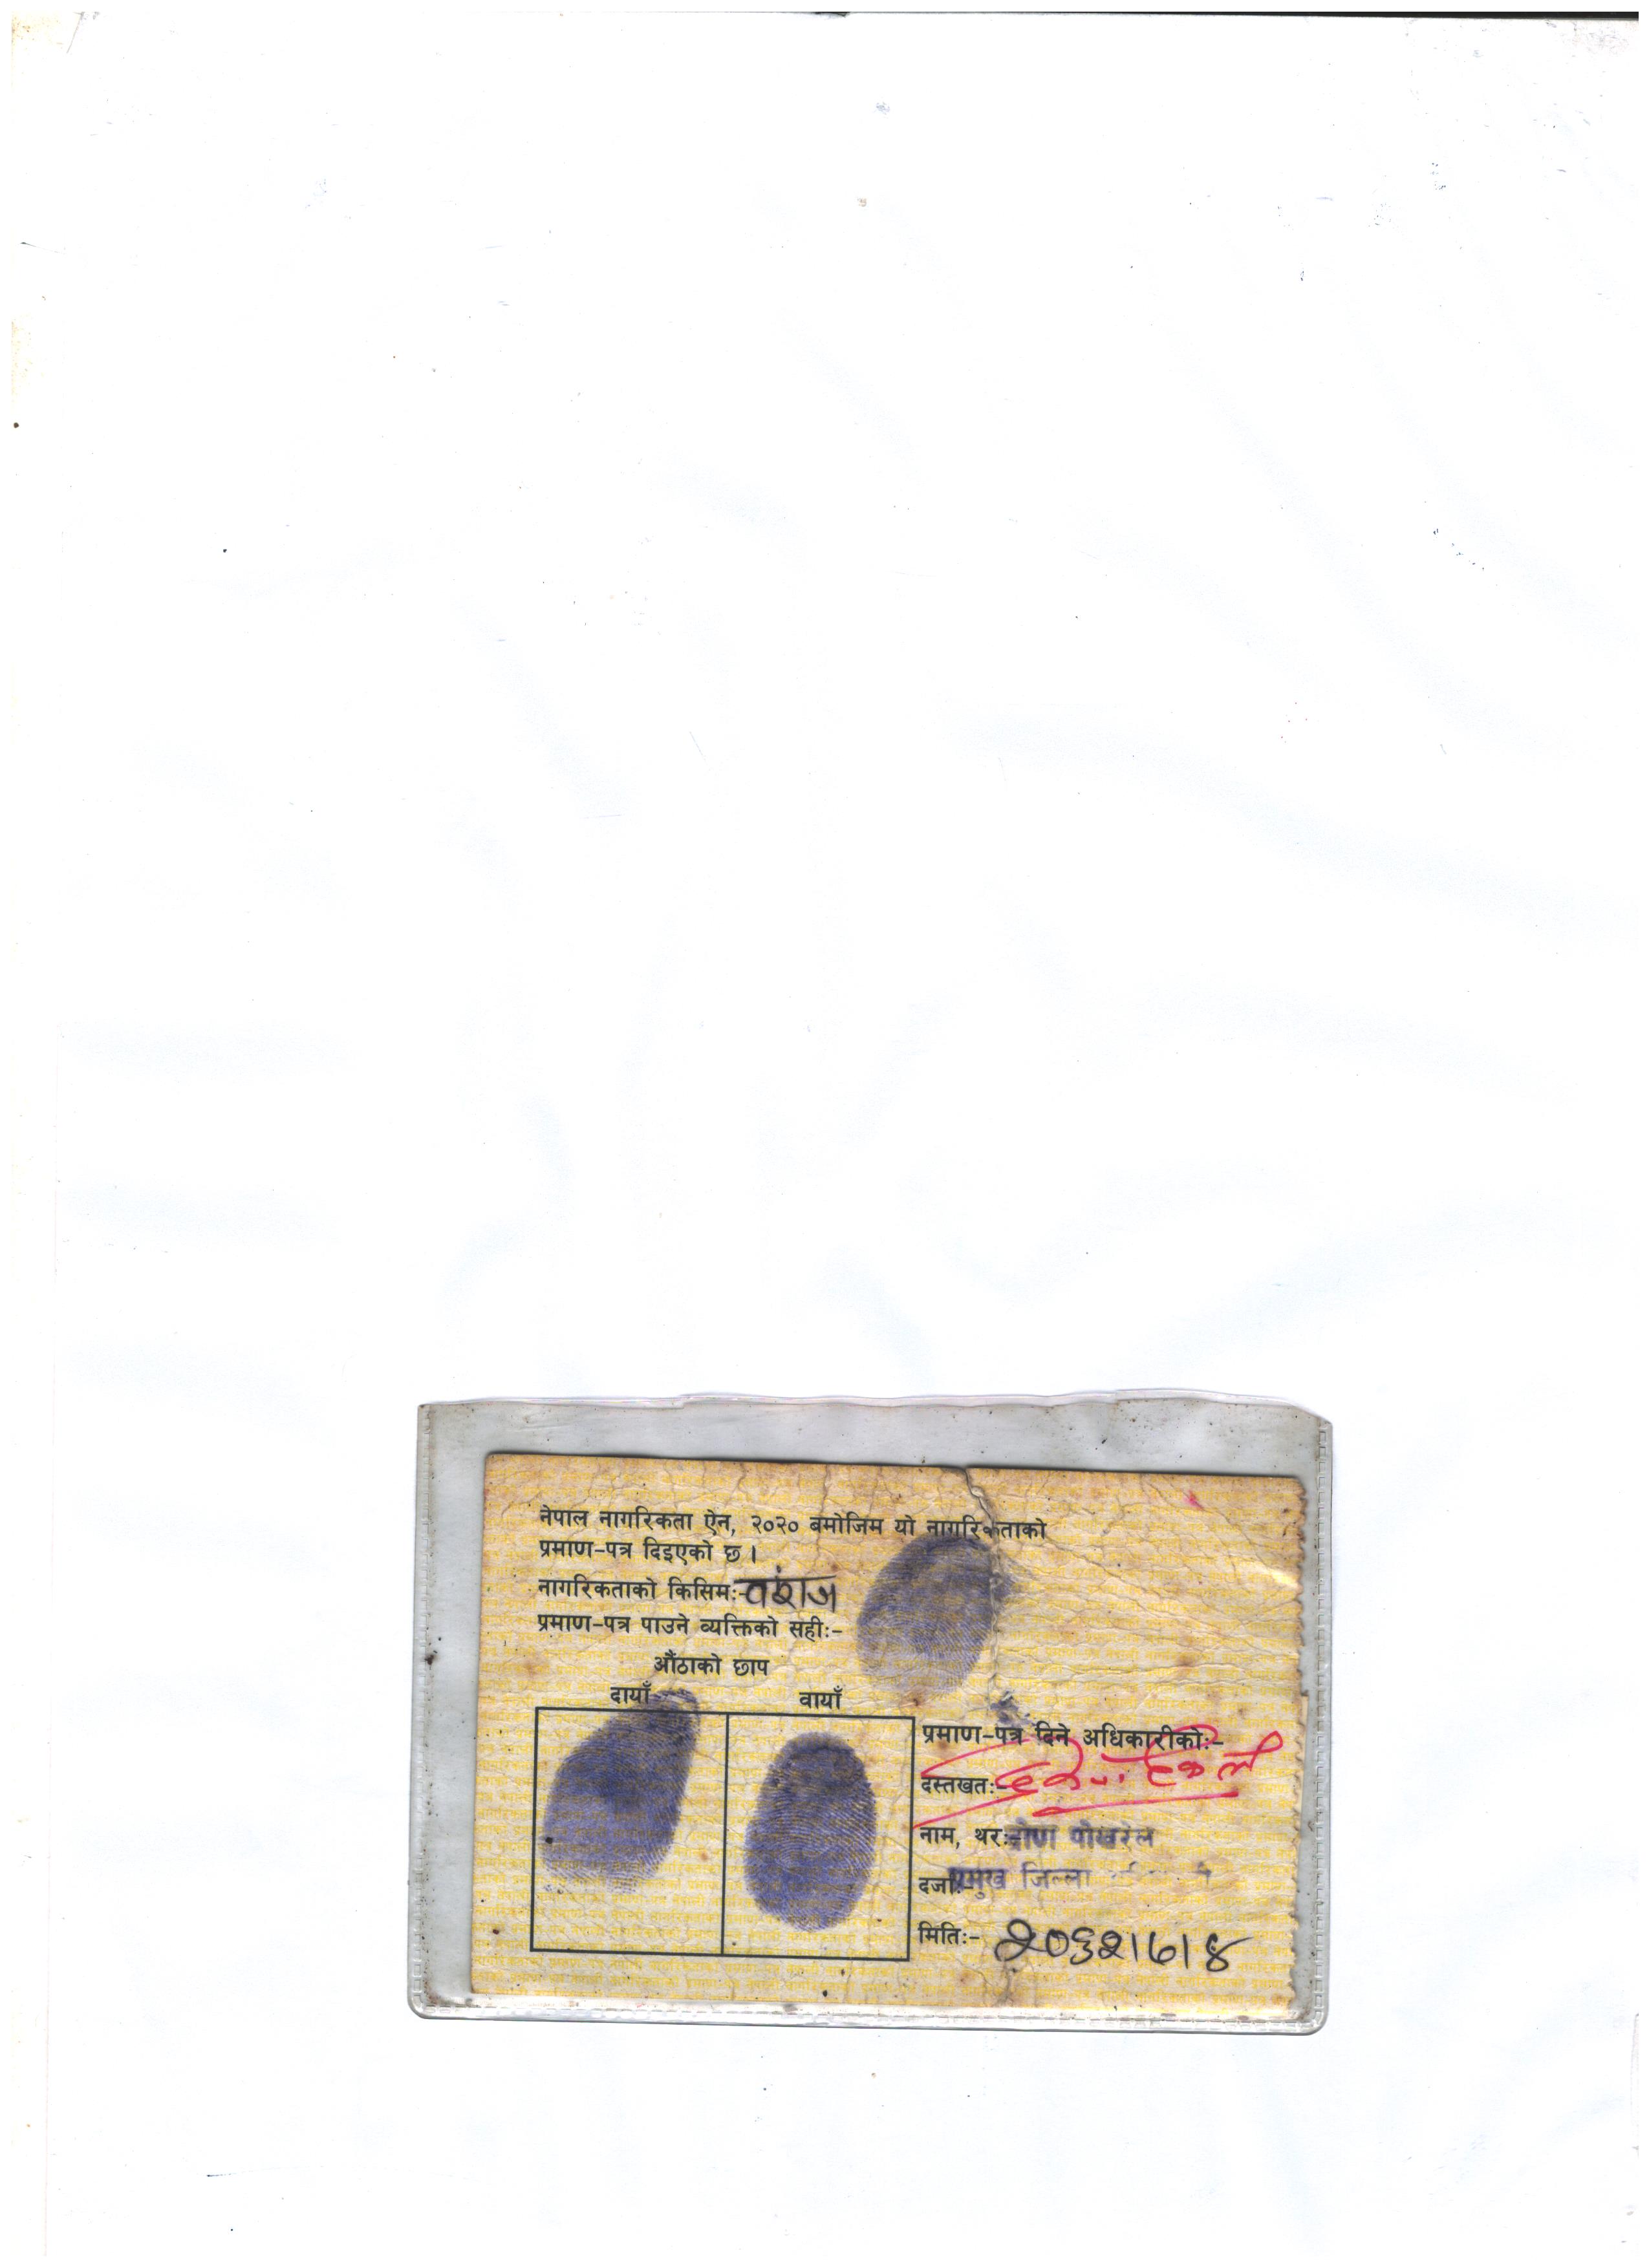 नेपाल नागरिकता ऐन, २०२० बमोजिम यो नागरिकताको
प्रमाण-पत्र दिइएको छ ।
नागरिकताको किसिमः- वंशज
प्रमाण-पत्र पाउने व्यक्तिको सहीः-
औंठाको छाप
दायाँ वायाँ
प्रमाण-पत्र दिने अधिकारीकोः-
दस्तखतः-
नाम, थरः- पोखरेल
दर्जाः- प्रमुख जिल्ला
मितिः- २०६२।७।४